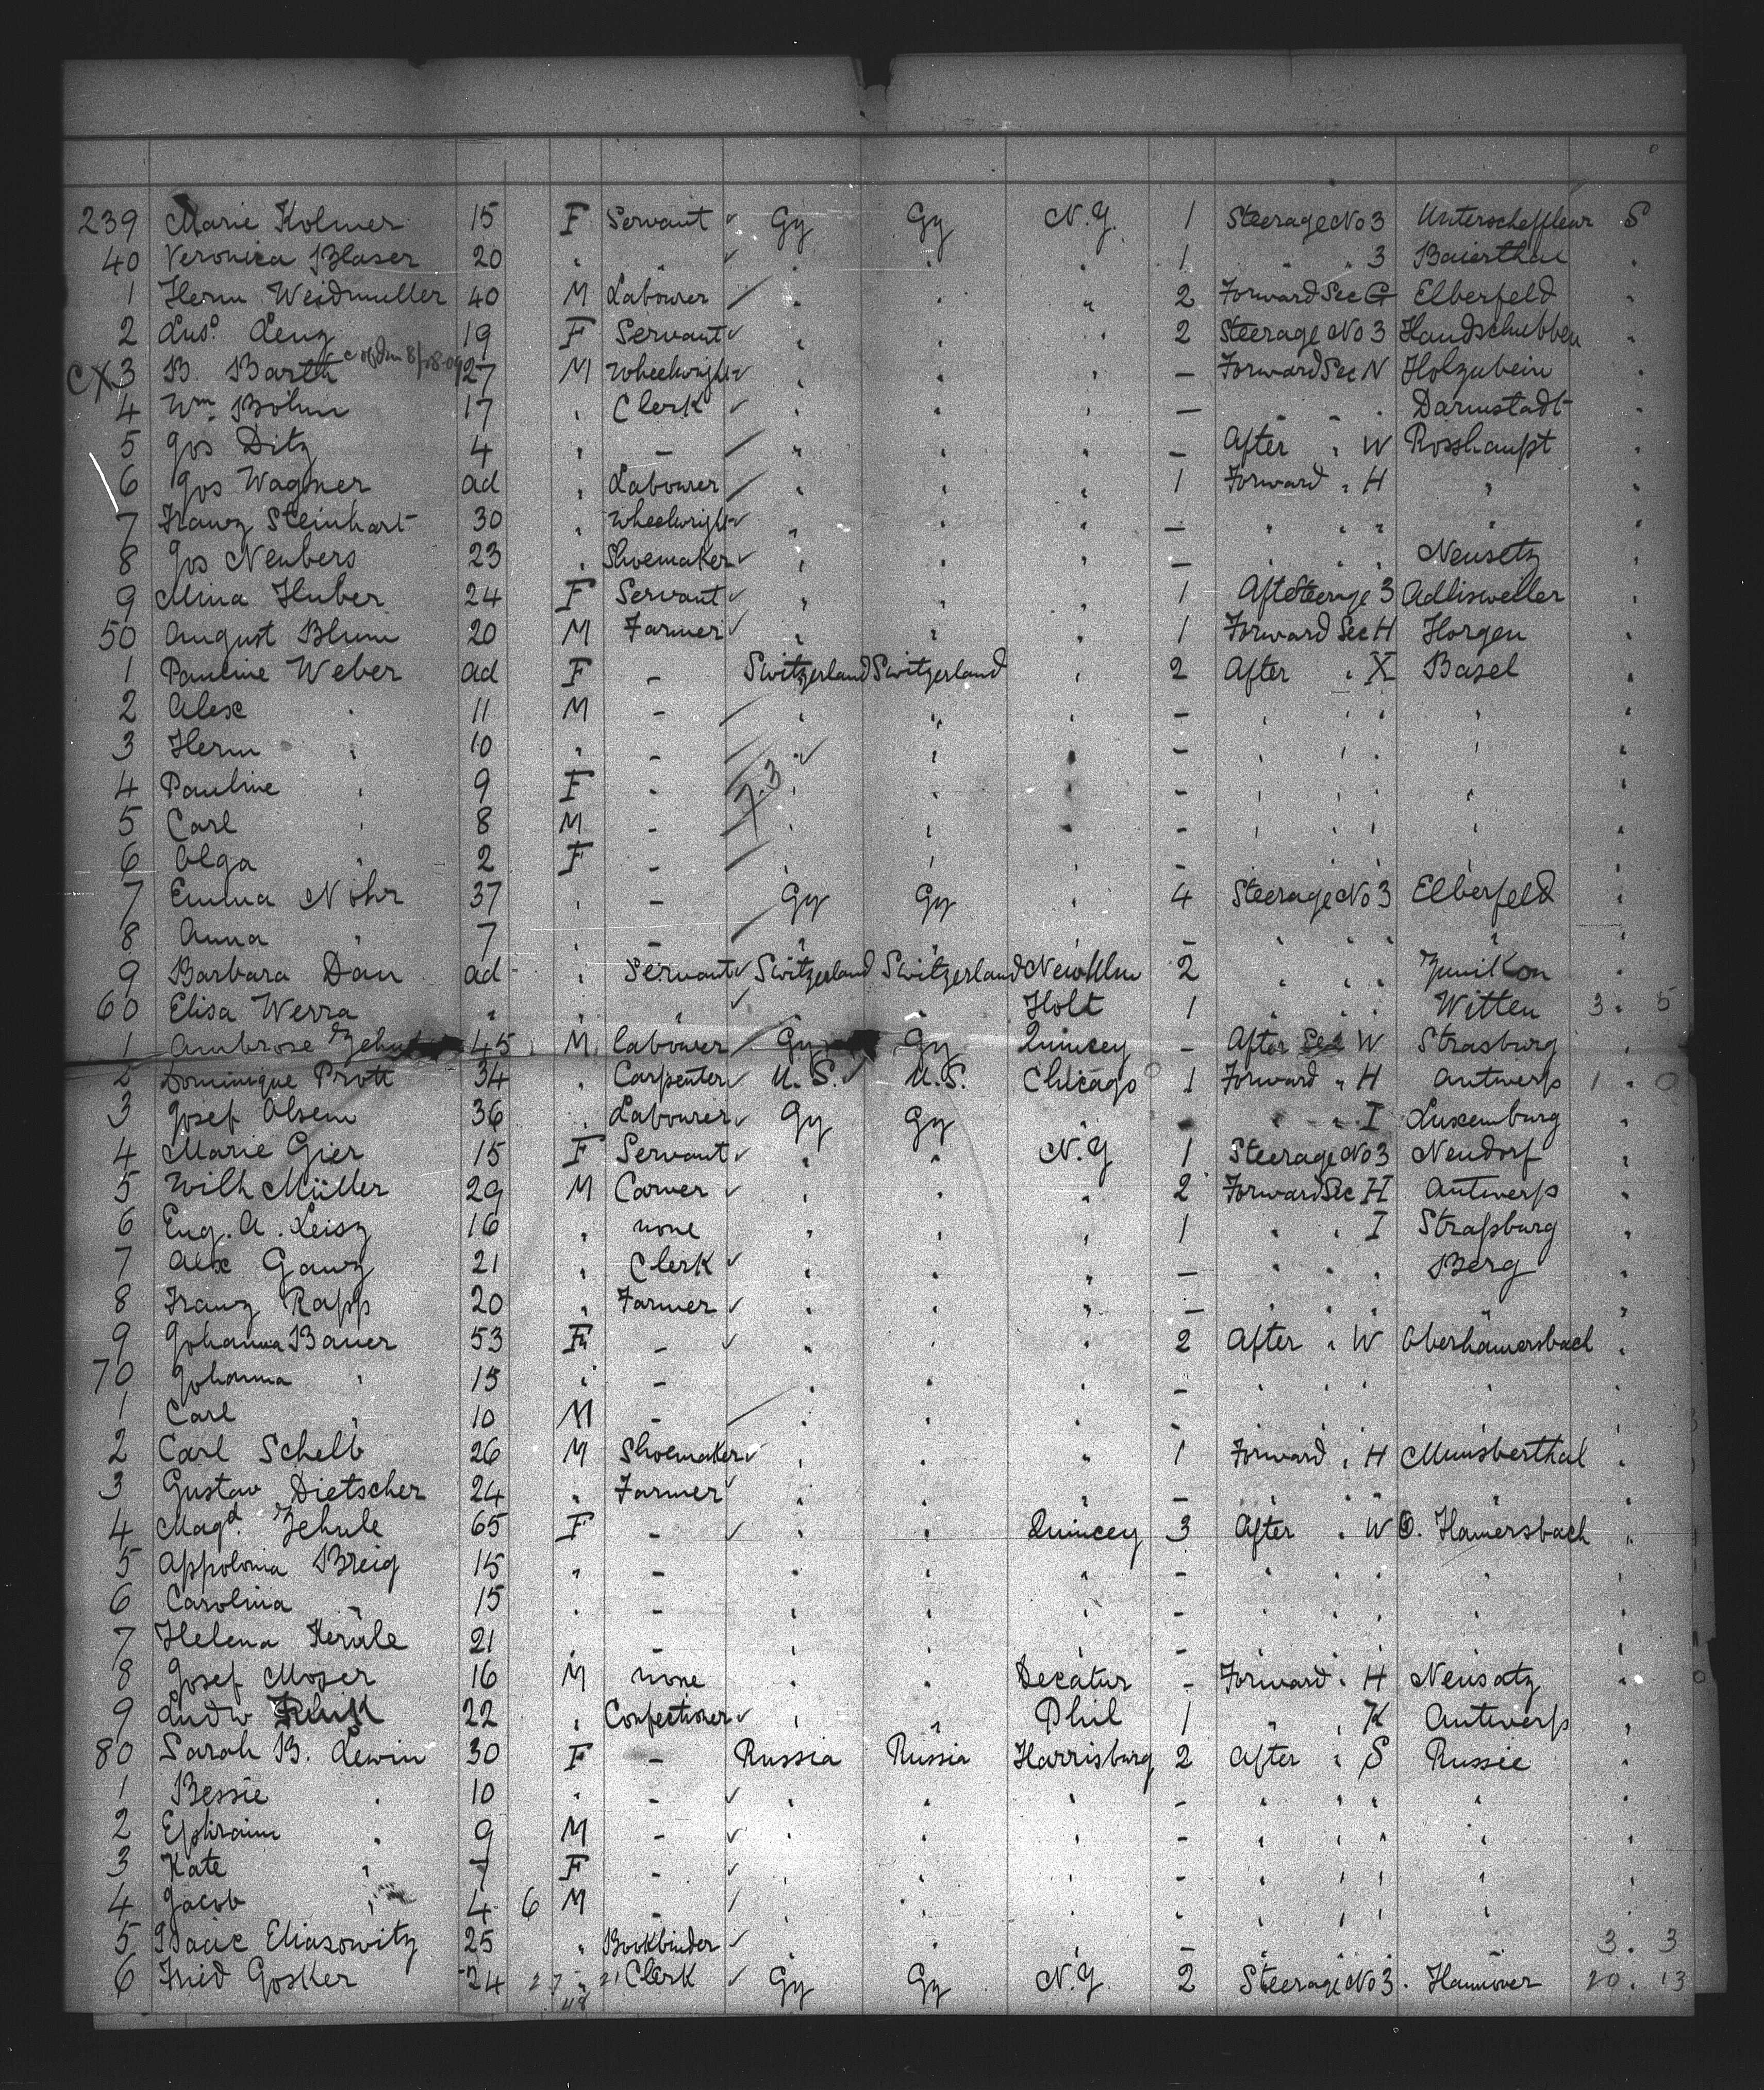 239 Marie Kolmer 15 F Servant ✓ Gy Gy N.Y. 1 Steerage No 3 Unterschefflear S
40 Veronica Blaser 20 " " ✓ " " " 1 " " 3 Baierthal "
1 Herm Weidmuller 40 M Labourer / " " " 2 Forward Sec G Elberfeld "
2 Lus. Lenz 19 F Servant ✓ " " " 2 Steerage No 3 Handschubben "
CX 3 B. Barth 27 M Wheelwright ✓ " " " — Forward Sec N Holzubein "
4 Wm Böhm 17 " Clerk ✓ " " " — " " " Darmstadt "
5 Jos Ditz 4 " — / " " " — After " W Rosshaupt "
6 Jos Wagner ad " Labourer / " " " 1 Forward " H " "
7 Franz Steinhart 30 " Wheelwright ✓ " " " — " " " " "
8 Jos Neubers 23 " Shoemaker ✓ " " " — " " " Neusetz "
9 Mina Huber 24 F Servant ✓ " " " 1 Aft Steerage 3 Adlisweller "
50 August Blum 20 M Farmer ✓ " " " 1 Forward Sec H Horgen "
1 Pauline Weber ad F — Switzerland Switzerland " 2 After " X Basel "
2 Alex " 11 M — / " " " — " " " " "
3 Herm " 10 " — / " " " — " " " " "
4 Pauline " 9 F — / " " " — " " " " "
5 Carl " 8 M — / " " " — " " " " "
6 Olga " 2 F — / " " " — " " " " "
7 Emma Nöhr 37 " — Gy Gy " 4 Steerage No 3 Elberfeld "
8 Anna " 7 " — / " " " — " " " " "
9 Barbara Dan ad " Servant ✓ Switzerland Switzerland New Ulm 2 " " " Zumikon "
60 Elisa Werra " " " ✓ " " Holt 1 " " " Witten 3. 5
1 Ambrose 45 M Labourer / Gy Gy Quincey — After Sec W Strasburg "
2 Dominique Prott 34 " Carpenter ✓ U.S. U.S. Chicago 1 Forward " H Antwerp 1 . 0
3 Josef Olsem 36 " Labourer ✓ Gy Gy " " " I Luxemburg "
4 Marie Gier 15 F Servant ✓ " " N.Y 1 Steerage No 3 Neudorf "
5 Wilh Müller 29 M Carver ✓ " " " 2 Forward Sec H Antwerp "
6 Eug. A. Leisz 16 " none " " " 1 " " I Straßburg "
7 Alex Ganz 21 " Clerk ✓ " " " — " " " Berg "
8 Franz Rapp 20 " Farmer ✓ " " " — " " " " "
9 Johanna Bauer 53 F — ✓ " " " 2 After " W Oberhamersbach "
70 Johanna " 15 " — " " " — " " " " "
1 Carl " 10 M — / " " " — " " " " "
2 Carl Schelb 26 M Shoemaker ✓ " " " 1 Forward " H Munsberthal "
3 Gustav Dietscher 24 " Farmer ✓ " " " — " " " " "
4 Magd. Zehule 65 F — ✓ " " Quincey 3 After " W O. Hamersbach "
5 Appolonia Breig 15 " — " " " — " " " " "
6 Carolina " 15 " — " " " — " " " " "
7 Helena 21 " — " " " — " " " " "
8 Josef Moser 16 M none " " Decatur — Forward " H Neusatz "
9 Ludw 22 " Confectioner ✓ " " Phil 1 " " K Antwerp "
80 Sarah B. Lewin 30 F — Russia Russia Harrisburg 2 After " S Russie "
1 Bessie " 10 " — ✓ " " " — " " " " "
2 Ephraim " 9 M — ✓ " " " — " " " " "
3 Kate " 7 F — ✓ " " " — " " " " "
4 Jacob " 4 6 M — / " " " " " " " " "
5 Isaac Eliasowitz 25 " Bookbinder ✓ " " " — " " " " 3. 3
6 Fried Gosker 24 27 21 Clerk ✓ Gy Gy N.Y. 2 Steerage No 3. Hannover 20. 13
48
7.3